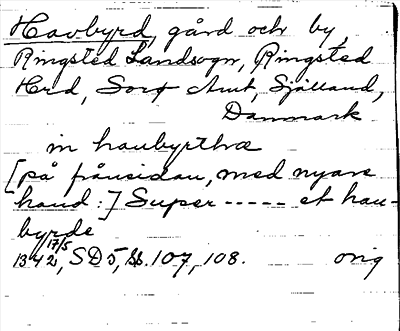 Havbyrd, gård och by,
Ringsted Landsogn, Ringsted
Hrd, Sorø Amt, Sjælland,
Danmark
in haubyrthæ
[på frånsidan, med nyare
hand:] Super ----- et hau-
byrde
17/5
1342, SD5, s. 107, 108. orig